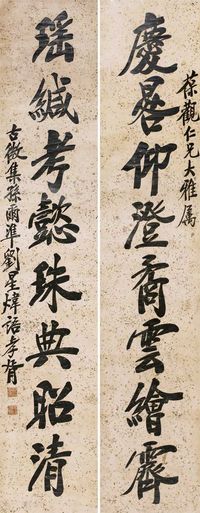 葆觀仁兄大雅屬
慶晷仰澄矞雲繪霽
瑤緘考懿珠典昭清
古微集孫爾準劉星煒語孝胥